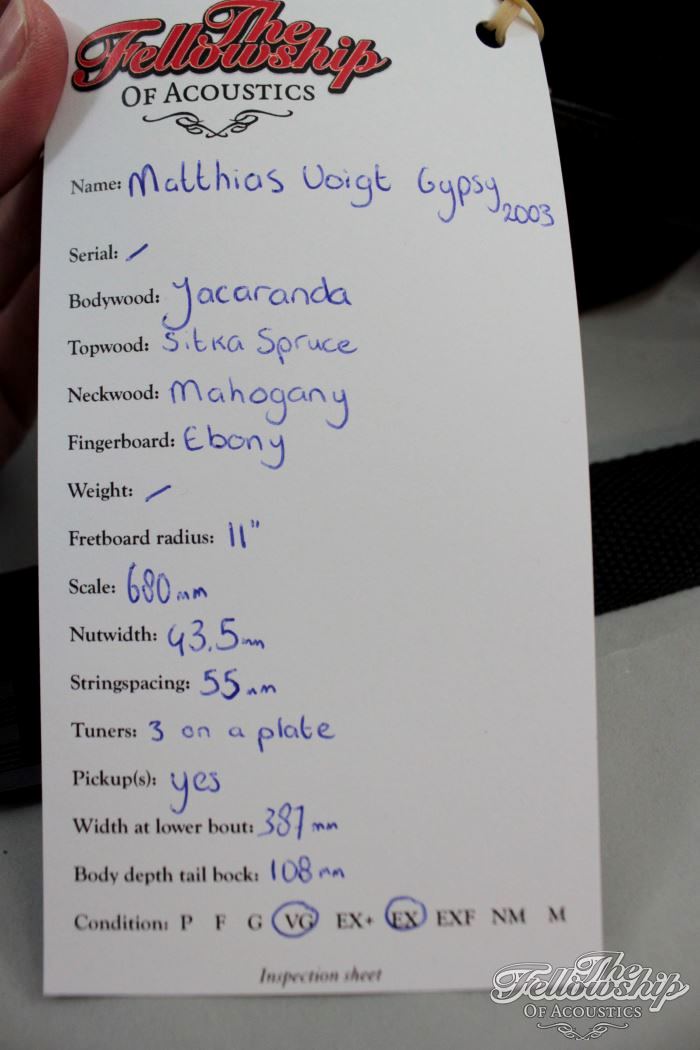 The
Fellowship
OF ACOUSTICS
Name: Matthias Voigt Gypsy
2003
Serial: /
Bodywood: Jacaranda
Topwood: Sitka Spruce
Neckwood: Mahogany
Fingerboard: Ebony
Weight: /
Fretboard radius: 11"
Scale: 680mm
Nutwidth: 43.5mm
Stringspacing: 55mm
Tuners: 3 on a plate
Pickup(s): yes
Width at lower bout: 387mm
Body depth tail bock: 108mm
Condition: P F G VG EX+ EX EXF NM M
Inspection sheet
The
Fellowship
OF ACOUSTICS